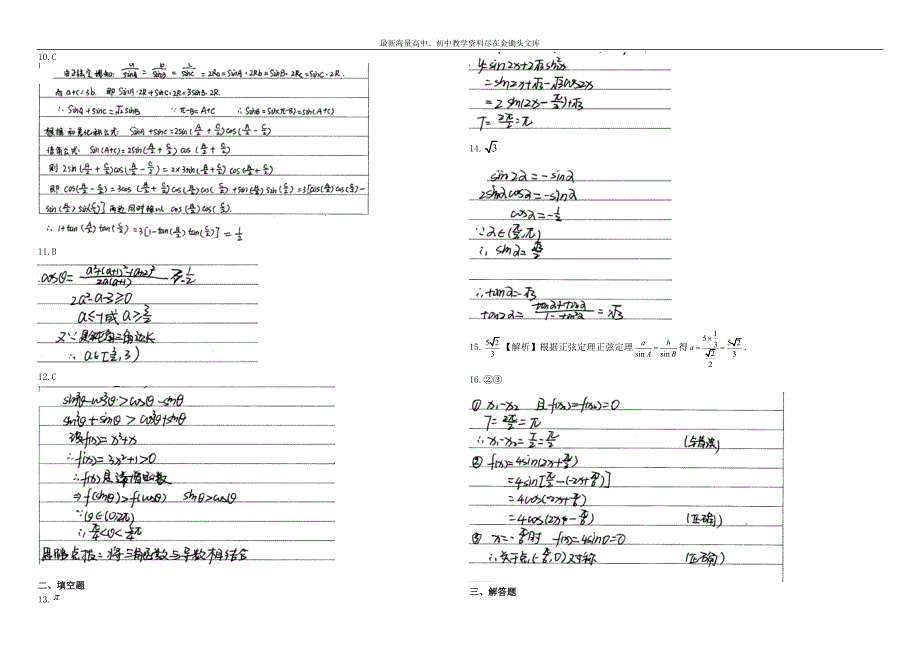 最新海量高中、初中教学资料尽在金锄头文库
10.C
由正弦定理知: a/sinA = b/sinB = c/sinC = 2R
a=sinA·2R b=sinB·2R c=sinC·2R.
而 a+c=3b. 即 sinA·2R+sinC·2R=3sinB·2R.
∵π-B=A+C ∴sinB=sin(π-B)=sin(A+C)
根据和差化积公式: sinA+sinC=2sin(A/2+C/2)cos(A/2-C/2)
倍角公式: sin(A+C)=2sin(A/2+C/2)cos(A/2+C/2)
则 2sin(A/2+C/2)cos(A/2-C/2)=2×3sin(A/2+C/2)cos(A/2+C/2)
即 cos(A/2-C/2)=3cos(A/2+C/2)
∴1+tan(A/2)tan(C/2)=3[1-tan(A/2)tan(C/2)]=1/2
11.B
cosθ=(a²+(a+1)²-(a+2)²)/(2a(a+1)) ≥-1/2
2a²-a-3≥0
a≤-1或a≥3/2
又∵是钝角三角边长
∴a∈[3/2,3)
12.C
sin³θ-cos³θ>cosθ-sinθ
sin³θ+sinθ>cos³θ+cosθ
设f(x)=x³+x
∴f'(x)=3x²+1>0
∴f(x)是递增函数
⇒f(sinθ)>f(cosθ) sinθ>cosθ
∵θ∈(0,2π)
∴π/4<θ<5/4π
思路点拨:将三角函数与导数相结合
二、填空题
13.π
4sin2x+2√3sin²x
=sin2x+√3-√3cos2x
=2sin(2x-π/3)+√3
T=2π/2=π
14.√3
sin2α=-sinα
2sinαcosα=-sinα
cosα=-1/2
∵α∈(π/2,π)
∴sinα=√3/2
∴tanα=-√3
tan2α=(tanα+tanα)/(1-tan²α)=√3
15. 5√2/3 【解析】根据正弦定理正弦定理 a/sinA = b/sinB 得 a=(5×1/3)/(√2/2)=5√2/3.
16.②③
① x₁-x₂ 且f(x₁)=f(x₂)=0
T=2π/2=π
∴x₁-x₂=T/2=π/2
② f(x)=4sin(2x+π/3)
=4sin[π/2-(-2x+π/6)]
=4cos(-2x+π/6)
=4cos(2x-π/6) (正确)
③ x=-π/6时 f(x)=4sin0=0
∴关于点(-π/6,0)对称 (正确)
三、解答题